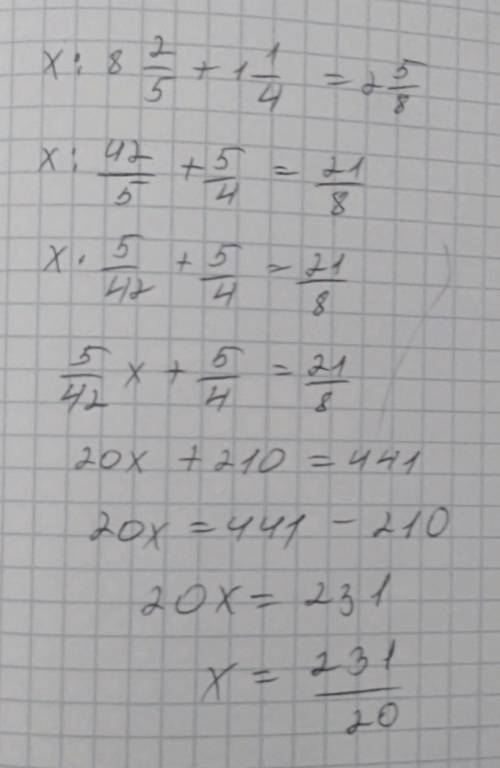 x : 8 2/5 + 1 1/4 = 2 5/8
x : 42/5 + 5/4 = 21/8
x · 5/42 + 5/4 = 21/8
5/42 x + 5/4 = 21/8
20x + 210 = 441
20x = 441 - 210
20x = 231
x = 231/20